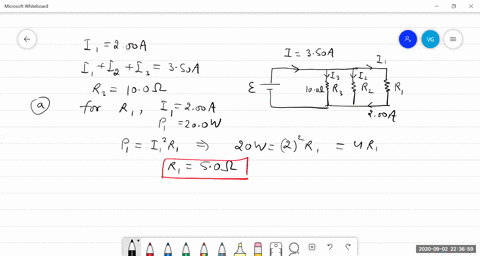 Microsoft Whiteboard
VG
I₁ = 2.00A
I₁ + I₂ + I₃ = 3.50A
R₃ = 10.0Ω
(a) for R₁, I₁ = 2.00A
P₁ = 20.0W
P₁ = I₁²R₁ ⇒ 20W = (2)² R₁ = 4R₁
R₁ = 5.0Ω
I = 3.50A
I₁
ε
I₃
I₂
10.0Ω
R₃
R₂
R₁
2.00A
2020-09-02 22:36:59